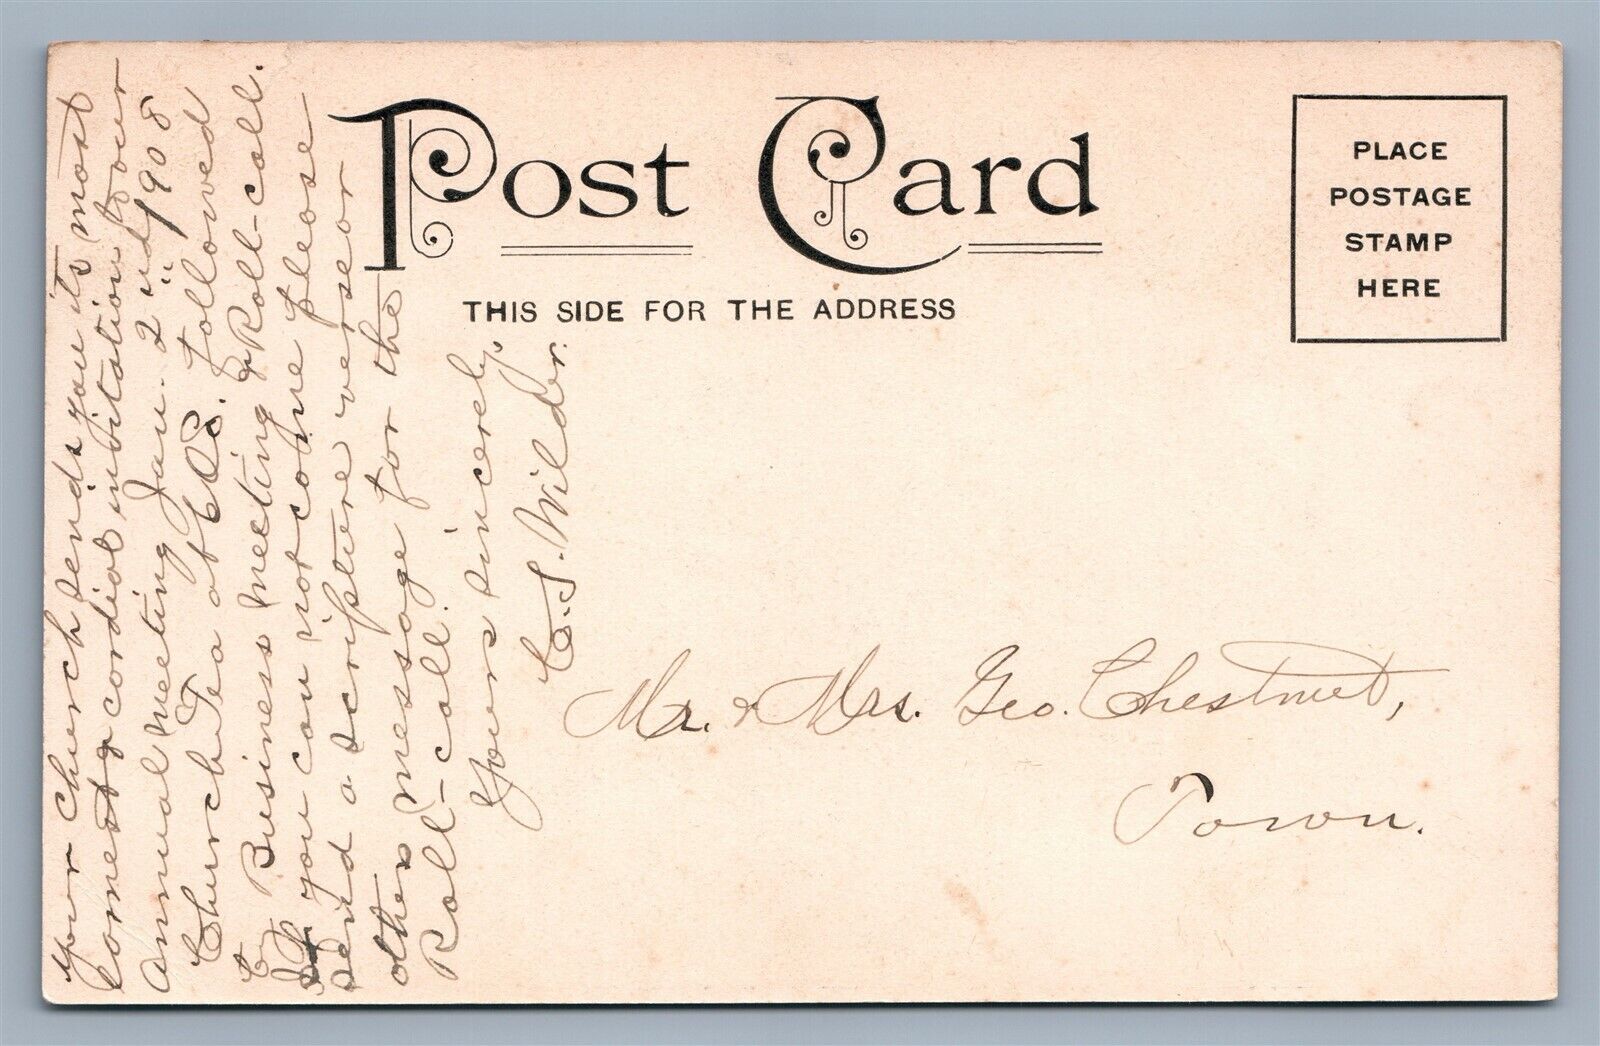 Post Card
THIS SIDE FOR THE ADDRESS
PLACE
POSTAGE
STAMP
HERE
Your church sends you its most
earnest & cordial invitation to our
annual meeting Jan. 2nd/1908
Church Tea at 6 followed
by Business meeting & Roll-call.
If you can not come please
send a scripture verse or
other message for the
Roll-call.
Yours sincerely,
C. S. Wilder.
Mr. & Mrs. Geo. Chestnut,
Town.